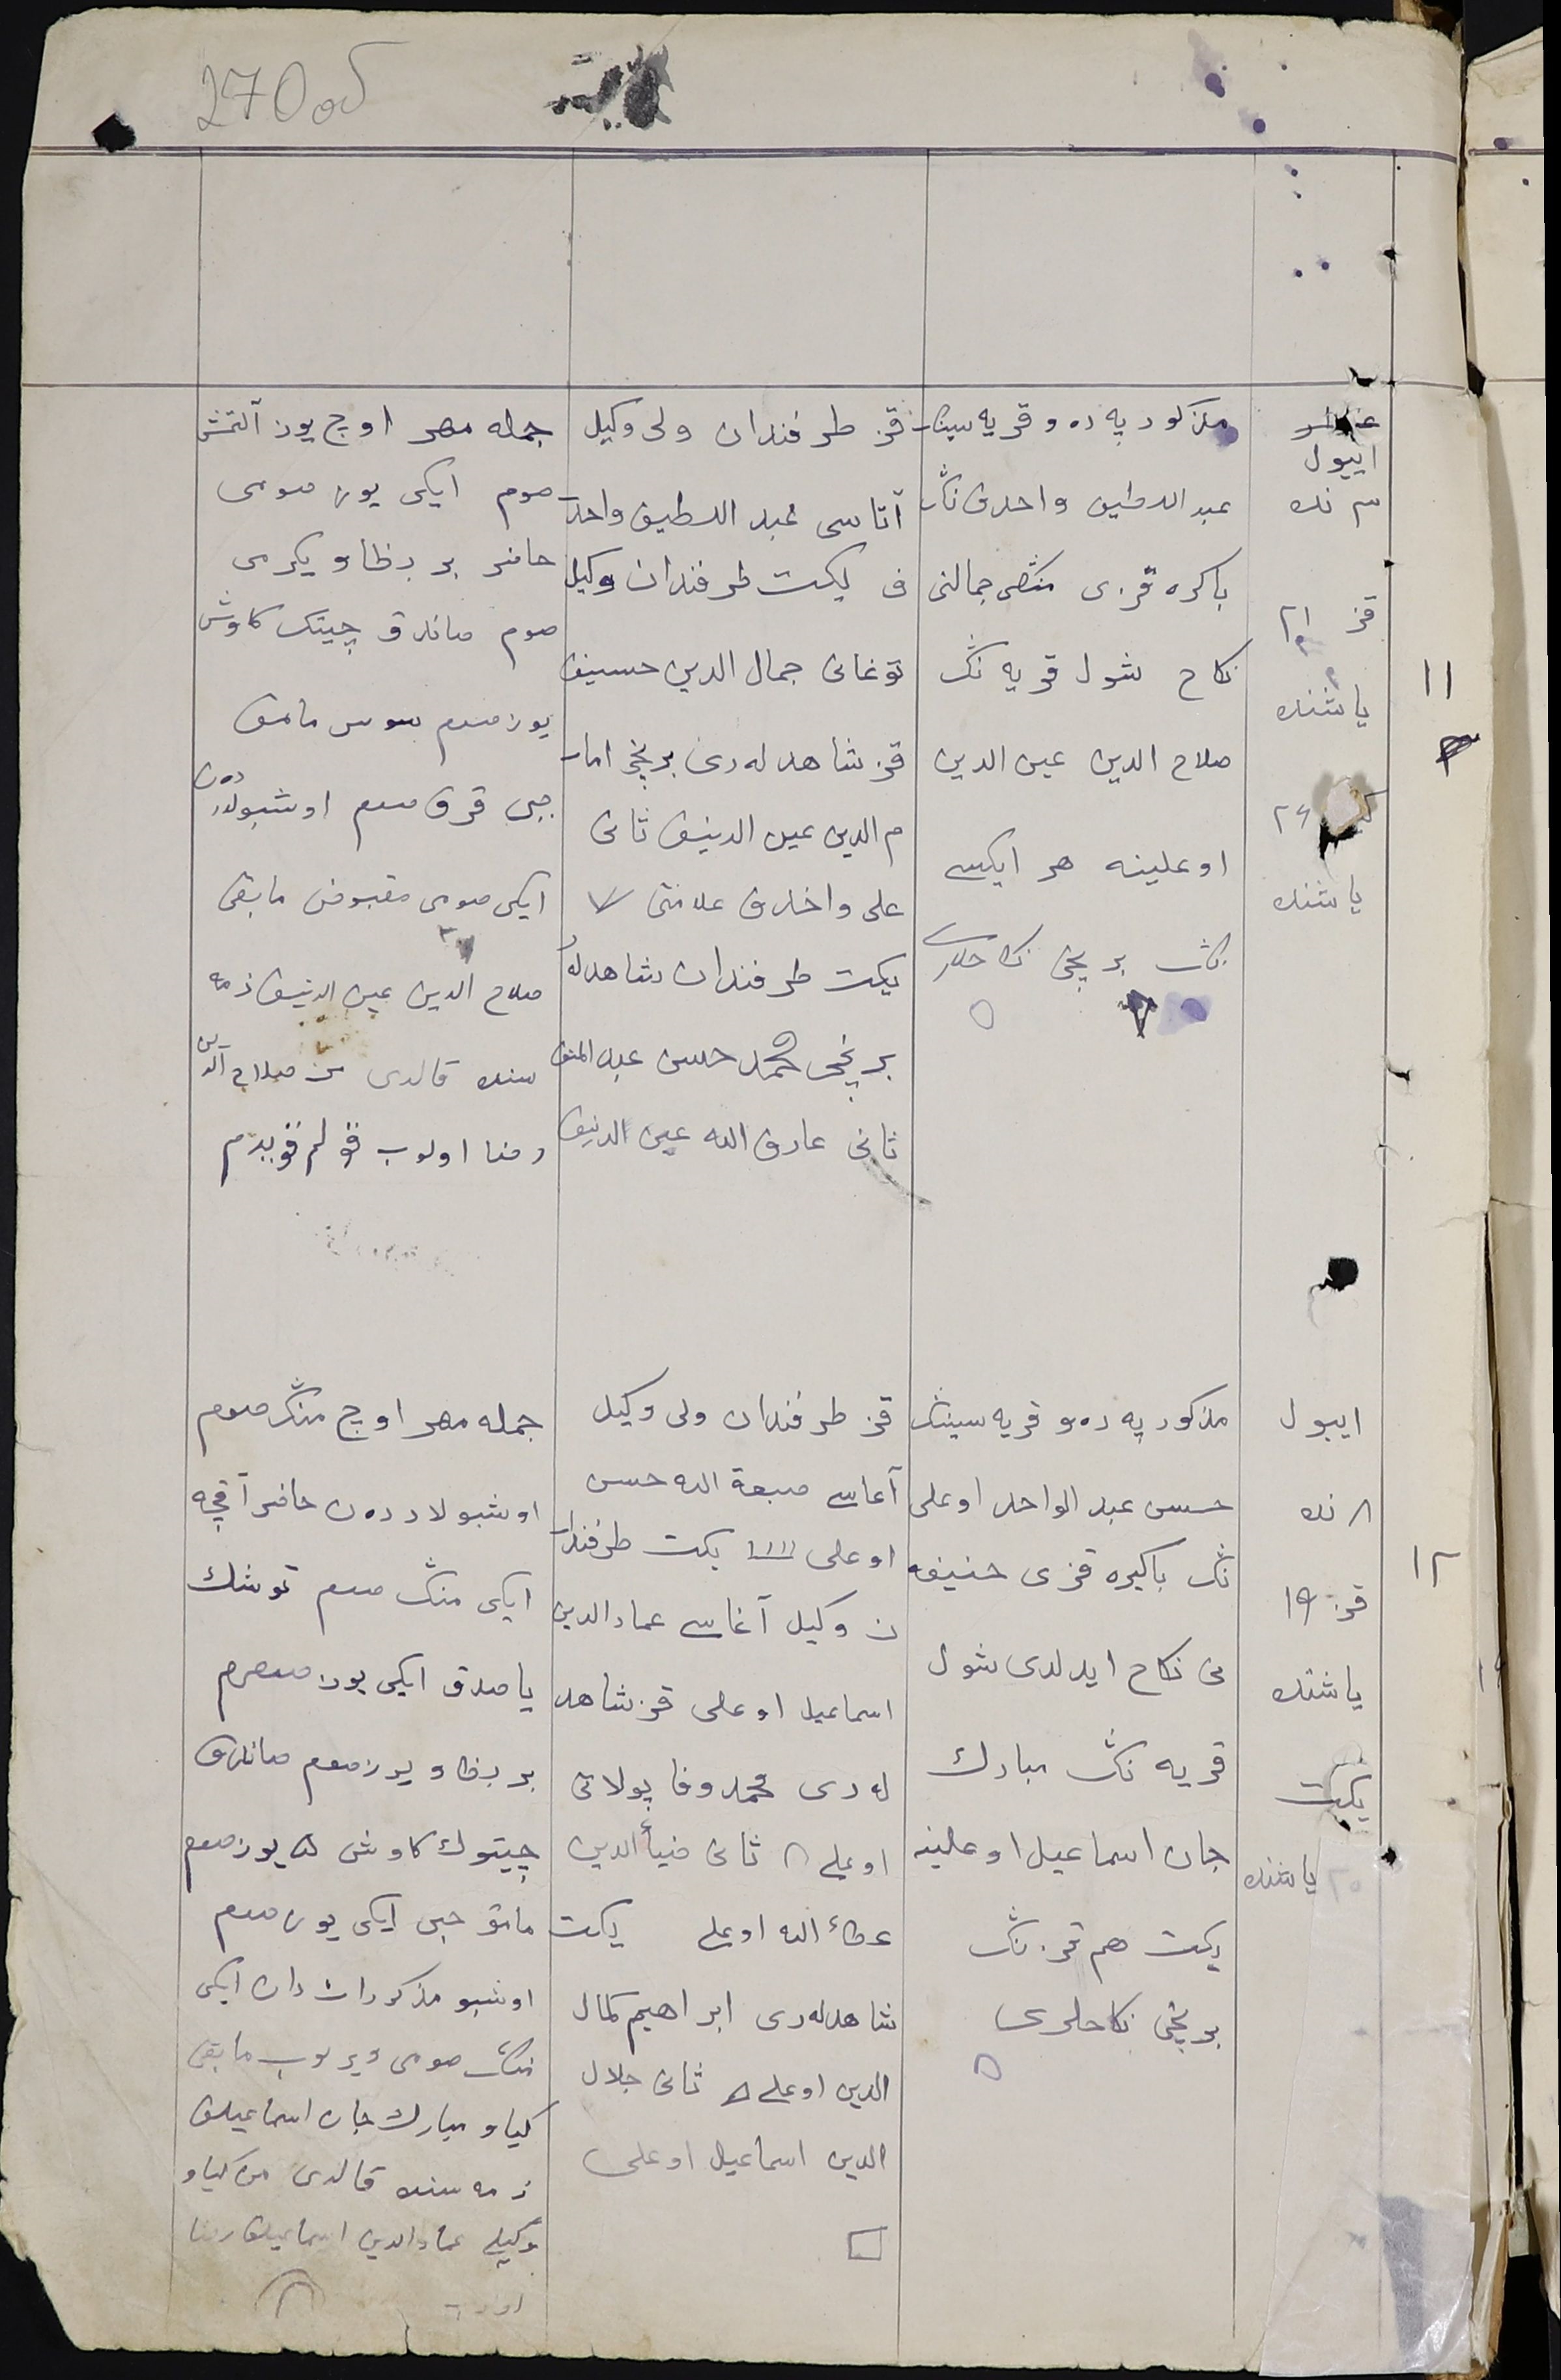 270об
11
ايیول
نده
قز ٢١
ياشنده
٢٤
ياشنده
مذکور په ده و قریه سینک
عبد اللطیف واحدف نڭ
باکره قزی جمالنی
نکاح شول قریه نڭ
صلاح الدین عین الدین
اوغلینه هر ایکیسے
نڭ برنچی نکاحلاری
قز طرفندان ولی وکیل
آتاسی عبد اللطیف واحد
ف یکت طرفندان وکیل
توغانی جمال الدین حسینف
قز شاهدلەری برنچی اما
م الدین عین الدینف ثانی
علی واخدف علامتی
یکت طرفندان شاهدلە
برنچی محمد حسن عبد
ثانی عارف الله عین الدینف
جمله مهر اوچ یوز آلتمش
صوم ایکی یوز صومی
حاضر بر یکرمی
صوم صاندق چیتک کاوش
یوز صوم
جبی قرق صوم اوشبولاردەن
ایکی صومی مقبوض مابقی
صلاح الدین عین الدینف ذمه
سنده قالدی من صلاح الدین
رضا اولوب قولم قویدم
12
ايیول
٨ نده
قز ١٩
ياشنده
یکت
ياشنده
مذکور په ده و قریه سینڭ
حسن عبد الواحد اوغلی
نڭ باکیره قزی حنیفه
نی نکاح ایدلدی شول
قریه نڭ مبارك
جان اسماعیل اوغلینه
یکت هم قز نڭ
برنچی نکاحلری
قز طرفندان ولی وکیل
آغاسے صبغة الله حسن
اوغلی یکت طرفندا
ن وکیل آغاسے عماد الدین
اسماعیل اوغلی قز شاهد
لەری محمد وفا بولاتی
اوغلے ثانی ضیأ الدین
عطأ الله اوغلے یکت
شاهدلەری ابراهیم کمال
الدین اوغلے ثانی جلال
الدین اسماعیل اوغلی
جمله مهر اوچ منڭ صوم
اوشبولاردەن حاضر آقچه
ایکی منڭ صوم توشك
یاصدق ایکی یوز صوم
بر یوز صوم صاندق
چیتوك کاوش یوز صوم
جبی ایکی یوز صوم
اوشبو مذکورات دان ایکی
منڭ صومی ویرلوب مابقی
کیاو مبارك جان اسماعیلف
ذمه سنده قالدی من کیاو
وکیلے عماد الدین اسماعیلف رضا